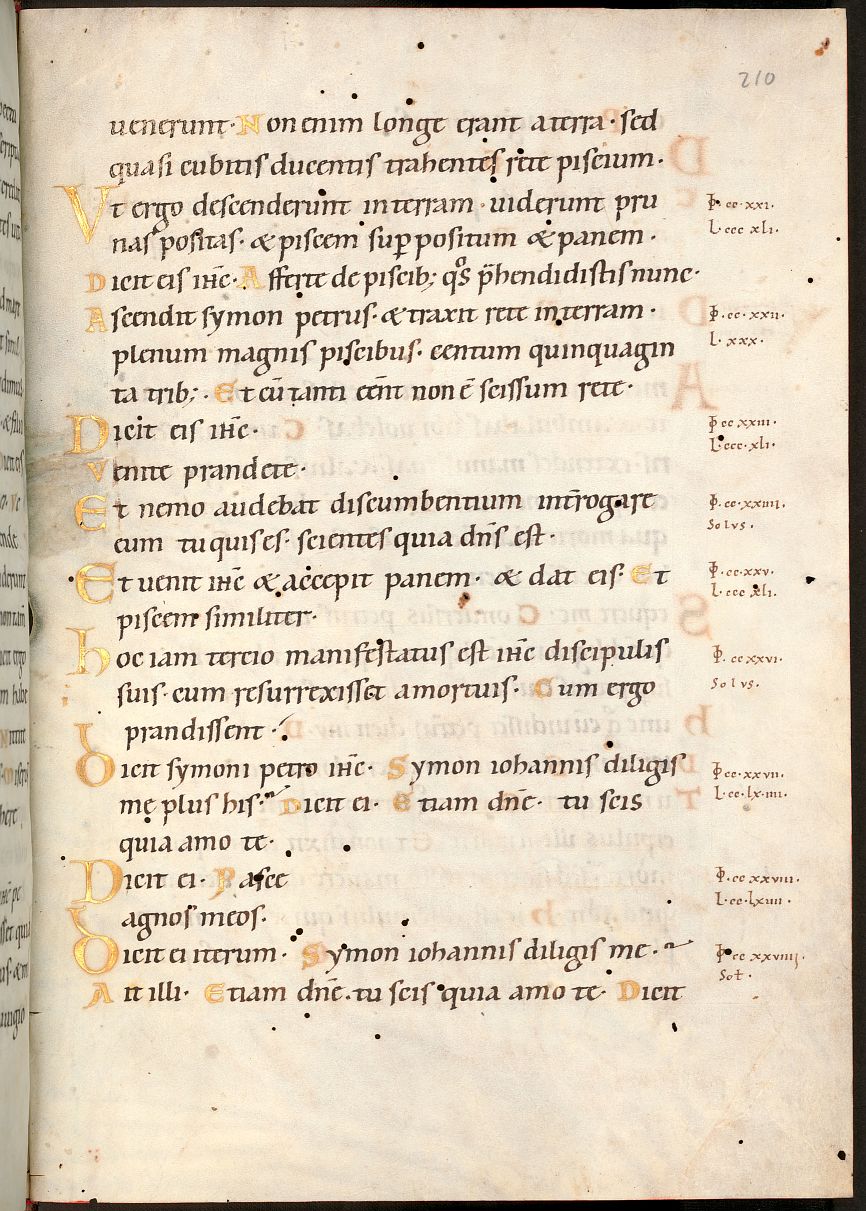 210
uenerunt· Non enim longe erant a terra· sed
quasi cubitis ducentis trahentes rete piscium·
Vt ergo descenderunt in terram· uiderunt pru
nas positas· & piscem sup̱positum & panem·
Dicit eis ih̅c· Afferte de piscib; qͦs p̄hendidistis nunc·
Ascendit symon petrus· & traxit rete in terram·
plenum magnis piscibus· centum quinquagin
ta trib;· Et cū tanti eēnt non ē scissum rete·
Dicit eis ih̅c·
Venite prandete·
Et nemo audebat discumbentium int̄rogare
eum tu quis es· scientes quia dn̄s est·
Et uenit ih̅c & accepit panem· & dat eis· Et
piscem similiter·
hoc iam tercio manifestatus est ih̅c discipulis
suis· cum resurrexisset a mortuis· Cum ergo
prandissent·
Dicit symoni petro ih̅c· Symon iohannis diligis
me plus his· Dicit ei· Etiam dn̄e· tu scis
quia amo te·
Dicit ei· Pasce
agnos meos·
Dicit ei iterum· Symon iohannis diligis me·
Ait illi· Etiam dn̄e· tu scis quia amo te· Dicit
·cc·xxi·
L· ccc xli·
·cc·xxii·
L· xxx·
cc xxiii·
L·ccc·xli·
·cc·xxiiii·
Solvs·
·cc·xxv·
L· ccc xli·
·cc xxvi·
Solvs·
·cc·xxvii·
L·cc·lx·iiii·
·cc xxviii·
L·cc·lxiiii·
·cc xxviiii·
Sol·